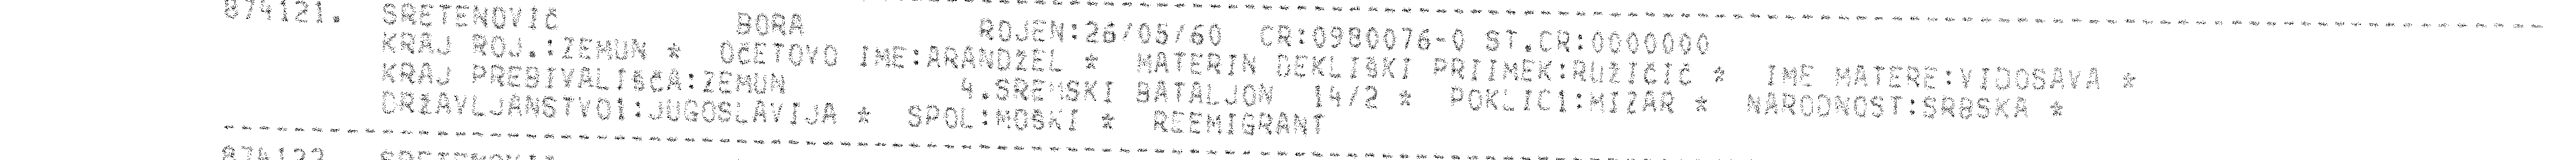 874121. SRETENOVIČ BORA ROJEN:26/05/60 CR:0980076-0 ST.CR:0000000
KRAJ ROJ.:ZEMUN * OČETOVO IME:ARANDŽEL * MATERIN DEKLIŠKI PRIIMEK:RUŽIČIČ * IME MATERE:VIDOSAVA *
KRAJ PREBIVALIŠČA:ZEMUN 4.SREMSKI BATALJON 14/2 * POKLIC1:MIZAR * NARODNOST:SRBSKA *
DRŽAVLJANSTVO1:JUGOSLAVIJA * SPOL:MOŠKI * REEMIGRANT